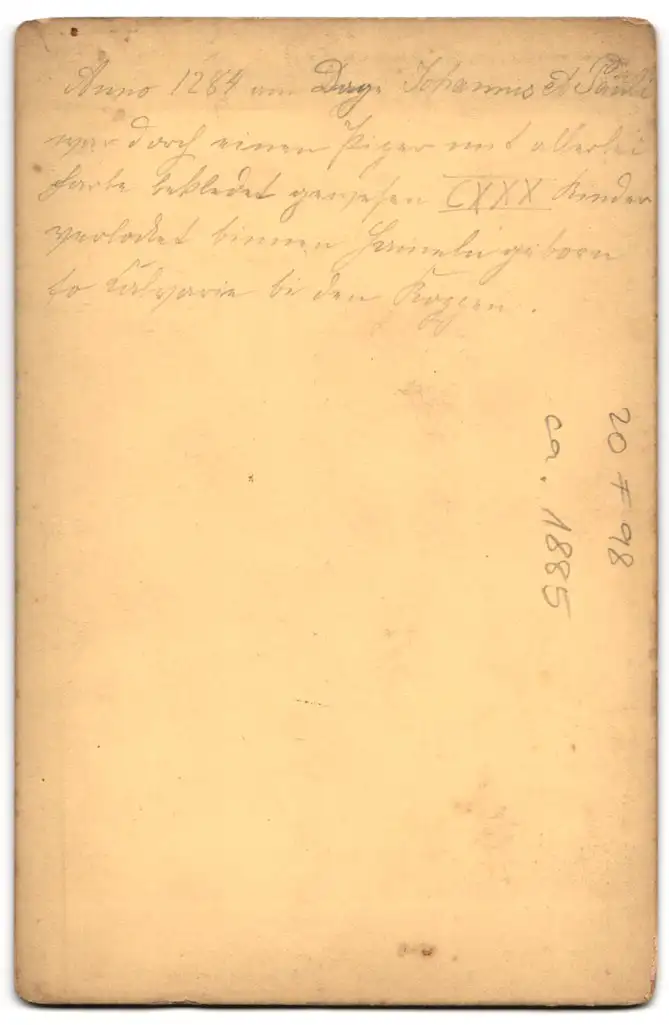 Anno 1284 am Dage Johannis et Pauli
war dorch einen Piper mit allerlei
Farbe bekledet gewesen CXXX Kinder
verlocket binnen Hameln geborn
to Calvarie bi den Koppen.
ca. 1885
20 F 98